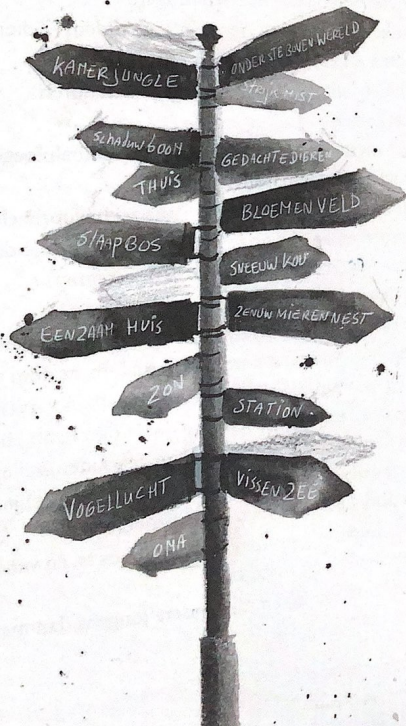 ONDERSTEBOVENWERELD
KAMERJUNGLE
STRIJK MIST
SCHADUWBOOM
GEDACHTEDIEREN
THUIS
BLOEMENVELD
SlAAPBOS
SNEEUW KOU
ZENUWMIERENNEST
EENZAAM HUIS
ZON
STATION
VOGELLUCHT
VISSENZEE
OMA